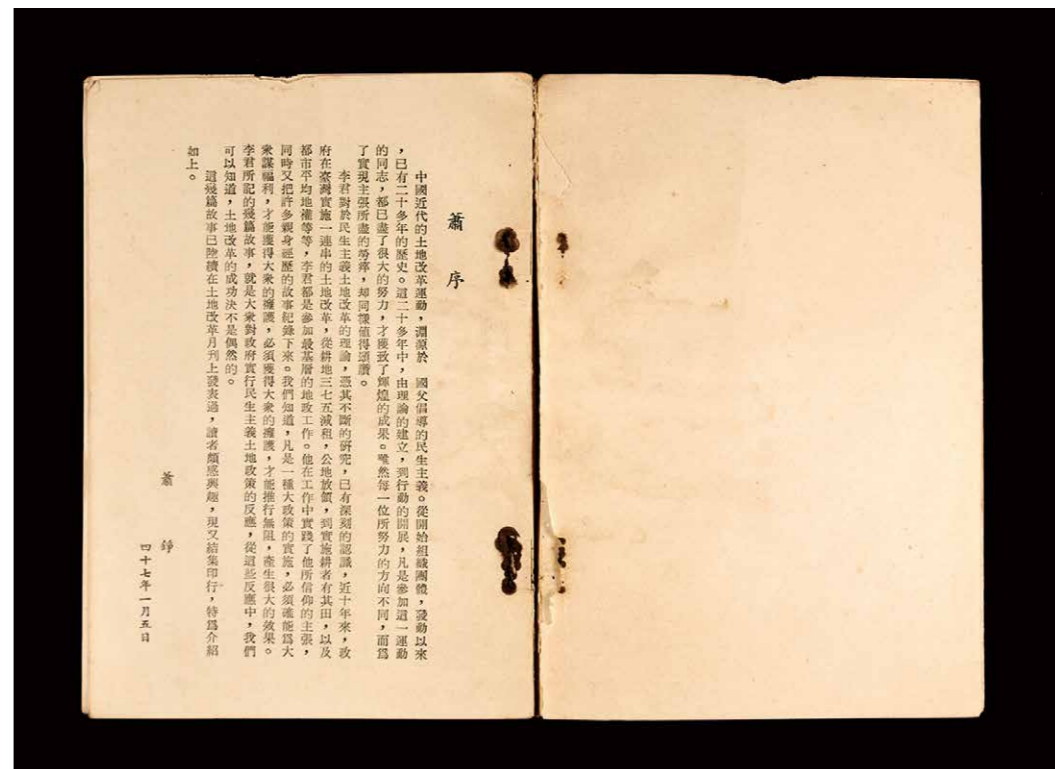 蕭序
中國近代的土地改革運動，淵源於　國父倡導的民生主義。從開始組織團體，發動以來
，已有二十多年的歷史。這二十多年中，由理論的建立，到行動的開展，凡是參加這一運動
的同志，都已盡了很大的努力，才慶致了輝煌的成果。雖然每一位所努力的方向不同，而爲
了實現主張所盡的勞瘁，却同樣值得頌讚。
李君對於民生主義土地改革的理論，憑其不斷的研究，已有深刻的認識，近十年來，政
府在臺灣實施一連串的土地改革，從耕地三七五減租，公地放領，到實施耕者有其田，以及
都市平均地權等等，李君都是參加最基層的地政工作。他在工作中實踐了他所信仰的主張，
同時又把許多親身經歷的故事紀錄下來。我們知道，凡是一種大政策的實施，必須確能爲大
衆謀福利，才能獲得大衆的擁護，必須獲得大衆的擁護，才能推行無阻，產生很大的效果。
李君所記的幾篇故事，就是大衆對政府實行民生主義土地政策的反應，從這些反應中，我們
可以知道，土地改革的成功決不是偶然的。
這幾篇故事已陸續在土地改革月刊上發表過，讀者頗感興趣，現又結集印行，特爲介紹
如上。
蕭錚
四十七年一月五日